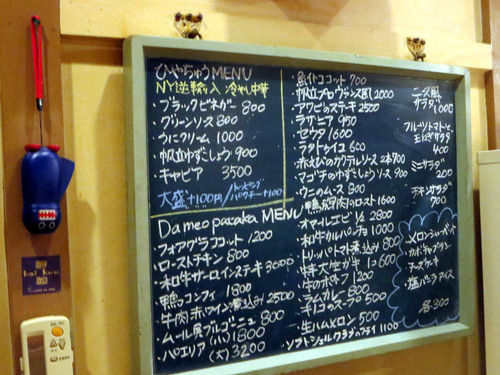 ひやちゅうMENU
NY逆輸入 冷やし中華
・ブラックビネガー 800
・グリーンソース 800
・うにクリーム 1000
・帆立ゆずこしょう 900
・キャビア 3500
大盛+100円
トッピング
パクチー+100
Dameo pacaka MENU
・フォアグラココット 1200
・ローストチキン 800
・和牛サーロインステーキ 3000
・鴨コンフィ 1800
・牛肉赤ワイン煮込み 2500
・ムール貝ブルゴーニュ 800
・パエリア (小) 1800
(大) 3200
ココット 700
・帆立プロヴァンス風 1200
・アワビのステーキ 2500
・ラザニア 950
・ゼウタ 1600
・ラタトゥイユ 600
・赤えびのカクテルソース 2本700
・マゴチのゆずこしょうソース 900
・ウニのムース 900
のロースト 1600
・オマールエビ ½ 2800
・和牛カルパッチョ 1000
・トリッパトマト煮込み 800
・特大生ガキ 1コ 600
・牛のホホ 1200
・ラムカレー 800
・キノコのスープ 500
・生ハムメロン 500
・ソフトシェルクラブのフライ 1100
ニース風
サラダ
1000
フルーツトマトと
玉ねぎサラダ
400
ミニサラダ
200
サラダ
700
・メロンシャーベット
・カボチャプリン
・チーズケーキ
・塩バニラアイス
各300